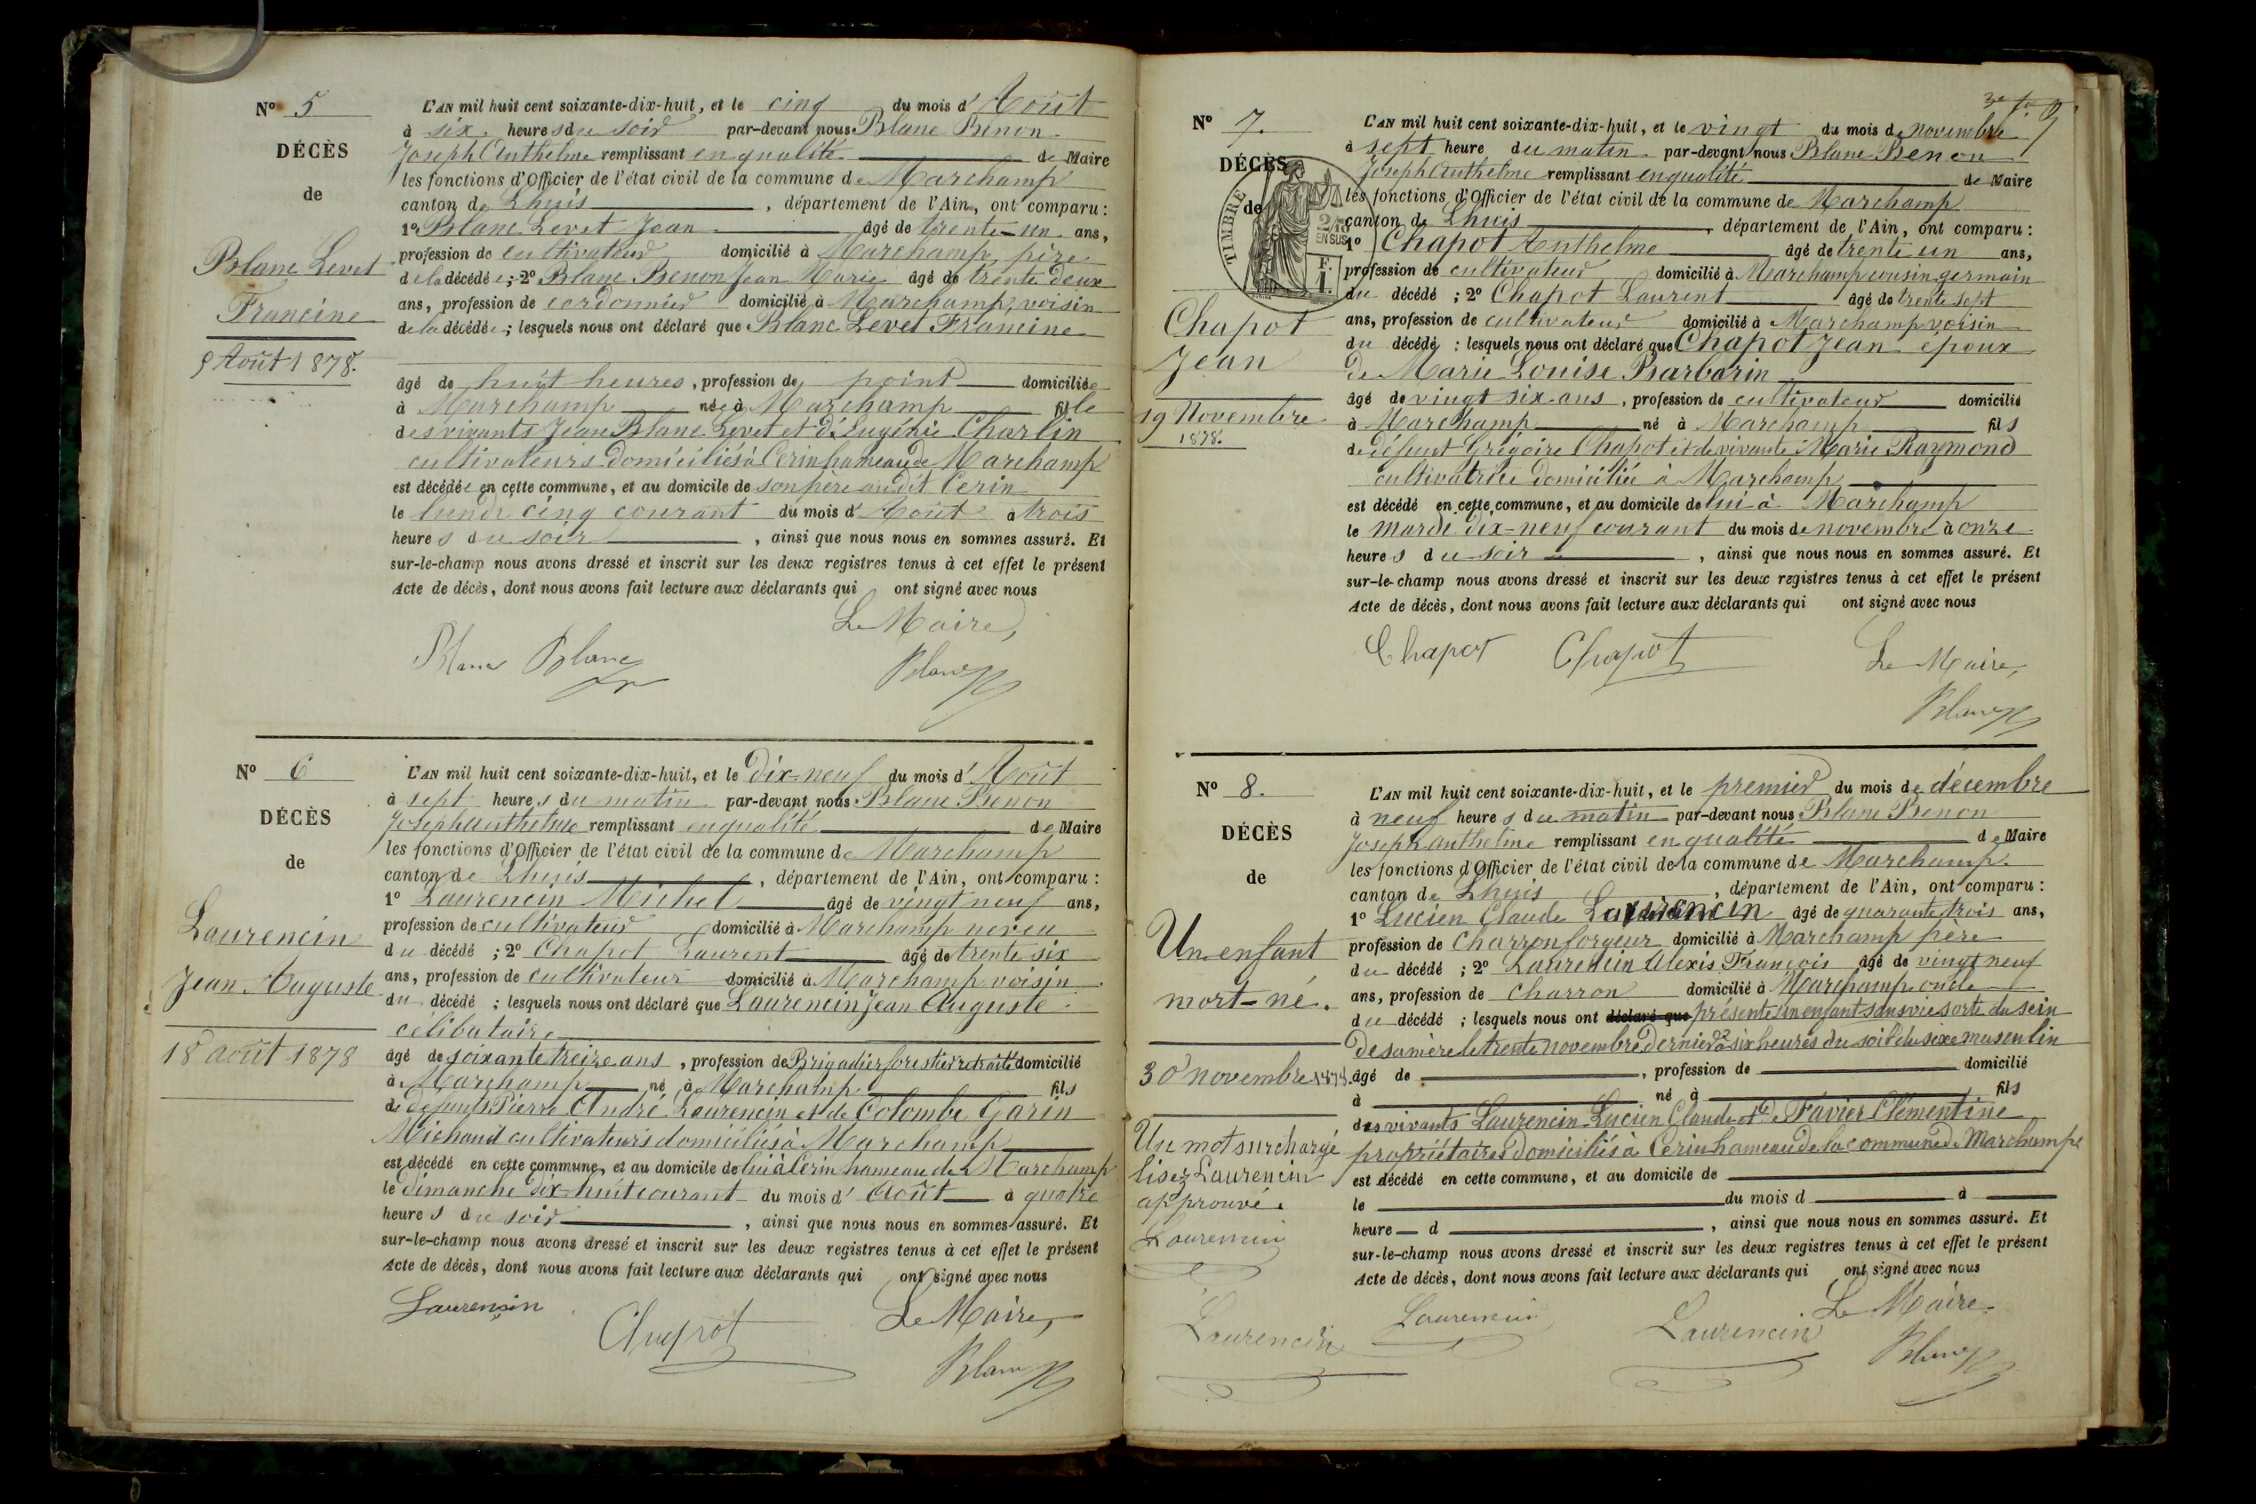 Nº 5
DÉCÈS
de
Blanc Levet
Francine
5 Août 1878.
L'AN mil huit cent soixante-dix-huit, et le cinq du mois d'Août
à six heures du soir par-devant nous Blanc Benon
Joseph Anthelme remplissant en qualité de Maire
les fonctions d'Officier de l'état civil de la commune de Marchamp
canton de Lhuis, département de l'Ain, ont comparu :
1º Blanc Levet Jean âgé de trente-un ans,
profession de cultivateur domicilié à Marchamp, père
de la décédée ; 2º Blanc Benon Jean Marie âgé de trente deux
ans, profession de cordonnier domicilié à Marchamp, voisin
de la décédée ; lesquels nous ont déclaré que Blanc Levet Francine
âgé de huit heures, profession de point domiciliée
à Marchamp née à Marchamp fille
des vivants Jean Blanc Levet et d'Eugénie Charlin
cultivateurs domiciliés à Cerin hameau de Marchamp
est décédée en cette commune, et au domicile de son père au dit Cerin
le lundi cinq courant du mois d'Août à trois
heures du soir, ainsi que nous nous en sommes assuré. Et
sur-le-champ nous avons dressé et inscrit sur les deux registres tenus à cet effet le présent
Acte de décès, dont nous avons fait lecture aux déclarants qui ont signé avec nous
Le Maire,
Blanc Blanc Blanc
Nº 6
DÉCÈS
de
Laurencin
Jean Auguste
18 août 1878
L'AN mil huit cent soixante-dix-huit, et le dix-neuf du mois d'Août
à sept heures du matin par-devant nous Blanc Benon
Joseph Anthelme remplissant en qualité de Maire
les fonctions d'Officier de l'état civil de la commune de Marchamp
canton de Lhuis, département de l'Ain, ont comparu :
1º Laurencin Michel âgé de vingt neuf ans,
profession de cultivateur domicilié à Marchamp neveu
du décédé ; 2º Chapot Laurent âgé de trente six
ans, profession de cultivateur domicilié à Marchamp voisin
du décédé ; lesquels nous ont déclaré que Laurencin Jean Auguste
célibataire
âgé de soixante treize ans, profession de Brigadier forestier retraité domicilié
à Marchamp né à Marchamp fils
de défunts Pierre André Laurencin et de Colombe Garin
Michaud cultivateurs domiciliés à Marchamp
est décédé en cette commune, et au domicile de lui à Cerin hameau de Marchamp
le dimanche dix-huit courant du mois d'Août à quatre
heures du soir, ainsi que nous nous en sommes assuré. Et
sur-le-champ nous avons dressé et inscrit sur les deux registres tenus à cet effet le présent
Acte de décès, dont nous avons fait lecture aux déclarants qui ont signé avec nous
Laurencin Chapot Le Maire,
Blanc
Nº 7.
DÉCÈS
de
TIMBRE
2/10
EN SUS
F.
1.
Chapot
Jean
19 Novembre
1878.
L'AN mil huit cent soixante-dix-huit, et le vingt du mois de novembre
à sept heure du matin par-devant nous Blanc Benon
Joseph Anthelme remplissant en qualité de Maire
les fonctions d'Officier de l'état civil de la commune de Marchamp
canton de Lhuis, département de l'Ain, ont comparu :
1º Chapot Anthelme âgé de trente un ans,
profession de cultivateur domicilié à Marchamp cousin germain
du décédé ; 2º Chapot Laurent âgé de trente sept
ans, profession de cultivateur domicilié à Marchamp voisin
du décédé ; lesquels nous ont déclaré que Chapot Jean époux
de Marie Louise Barbarin
âgé de vingt six ans, profession de cultivateur domicilié
à Marchamp né à Marchamp fils
de défunt Grégoire Chapot et de vivante Marie Raymond
cultivatrice domiciliée à Marchamp
est décédé en cette commune, et au domicile de lui à Marchamp
le mardi dix-neuf courant du mois de novembre à onze
heures du soir, ainsi que nous nous en sommes assuré. Et
sur-le-champ nous avons dressé et inscrit sur les deux registres tenus à cet effet le présent
Acte de décès, dont nous avons fait lecture aux déclarants qui ont signé avec nous
Chapot Chapot Le Maire,
Blanc
Nº 8.
DÉCÈS
de
Un enfant
mort-né.
30 novembre 1878.
Un mot surchargé
lisez Laurencin
approuvé.
Laurencin
Laurencin
L'AN mil huit cent soixante-dix-huit, et le premier du mois de décembre
à neuf heures du matin par-devant nous Blanc Benon
Joseph Anthelme remplissant en qualité de Maire
les fonctions d'Officier de l'état civil de la commune de Marchamp.
canton de Lhuis, département de l'Ain, ont comparu :
1º Lucien Claude Laurencin âgé de quarante trois ans,
profession de Charron forgeur domicilié à Marchamp père
du décédé ; 2º Laurencin Alexis François âgé de vingt neuf
ans, profession de Charron domicilié à Marchamp oncle
du décédé ; lesquels nous ont déclaré que présenté un enfant sans vie sorte du sein
de sa mère le trente novembre dernier à six heures du soir du sixe masculin
âgé de, profession de domicilié
à né à fils
des vivants Laurencin Lucien Claude et de Favier Clémentine
propriétaires domiciliés à Cerin hameau de la commune de Marchamp
est décédé en cette commune, et au domicile de
le du mois d à
heure d, ainsi que nous nous en sommes assuré. Et
sur-le-champ nous avons dressé et inscrit sur les deux registres tenus à cet effet le présent
Acte de décès, dont nous avons fait lecture aux déclarants qui ont signé avec nous
Laurencin Laurencin Le Maire.
Blanc